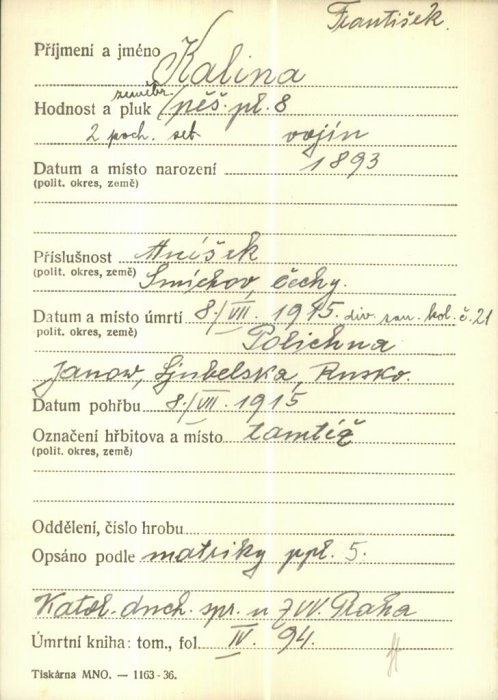 František.
Příjmení a jméno Kalina
zeměbr.
Hodnost a pluk pěš. pl. 8
2 poch. set. vojín
Datum a místo narození 1893
(polit. okres, země)
Příslušnost
(polit. okres, země) Smíchov, Čechy.
Datum a místo úmrtí 8./VII. 1915. div. san. kol. č. 21
(polit. okres, země) Polichna
Janow, Ljubelska, Rusko.
Datum pohřbu 8./VII. 1915
Označení hřbitova a místo tamtéž
(polit. okres, země)
Oddělení, číslo hrobu
Opsáno podle matriky ppl. 5.
Katol. duch. spr. u ZVV. Praha
Úmrtní kniha: tom., fol. IV. 94.
Tiskárna MNO. — 1163-36.